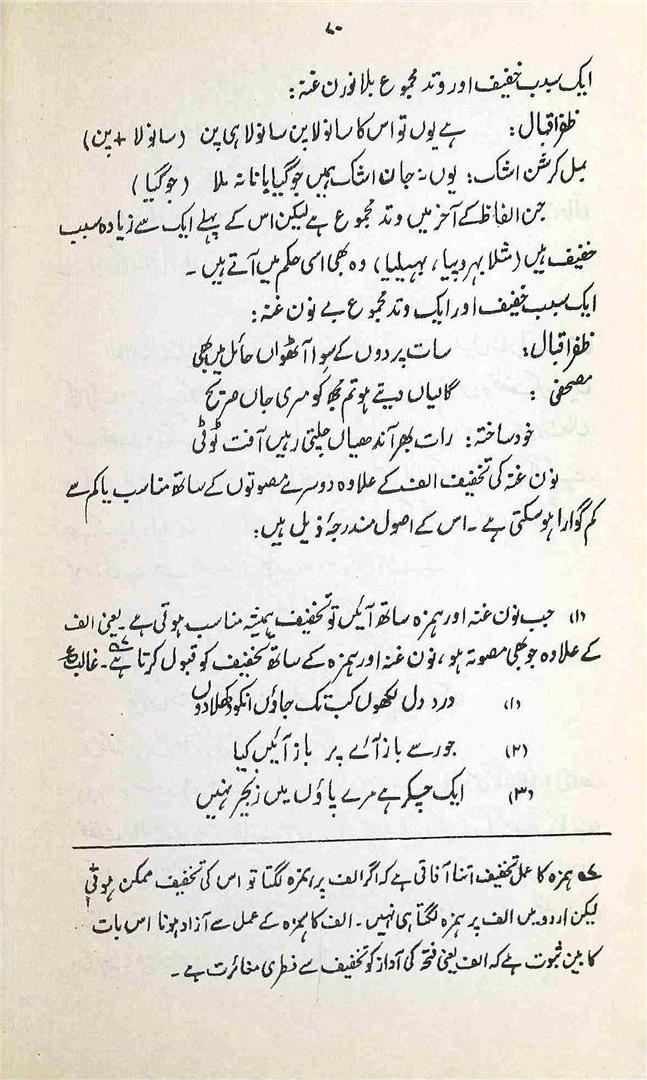 ۸۰
ایک سبب خفیف اور وتد مجموع بلا نون غنہ:
ظفر اقبال: ہے یوں تو اس کا سانولا پن سانولا ہی پن (سانولا + پن)
بمل کرشن اشک: یوں نہ جان اشک ہمیں جو گیا یا نا نہ ملا (جو گیا)
جن الفاظ کے آخر میں وتد مجموع ہے لیکن اس کے پہلے ایک سے زیادہ سبب
خفیف ہیں (مثلاً بہروپیا، پہیلیا) وہ بھی اسی حکم میں آتے ہیں۔
ایک سبب خفیف اور ایک وتد مجموع بے نون غنہ:
ظفر اقبال: سات پردوں کے سوا آٹھواں حائل میں بھی
مصحفی: گالیاں دیتے ہو تم مجھ کو مری جاں صریح
خود ساختہ: رات بھر آندھیاں چلتی رہیں آفت ٹوٹی
نون غنہ کی تخفیف الف کے علاوہ دوسرے مصوتوں کے ساتھ مناسب یا کم سے
کم گوارا ہو سکتی ہے۔ اس کے اصول مندرجۂ ذیل ہیں:
(۱) جب نون غنہ اور ہمزہ ساتھ آئیں تو تخفیف ہمیشہ مناسب ہوتی ہے۔ یعنی الف
کے علاوہ جو بھی مصوتہ ہو، نون غنہ اور ہمزہ کے ساتھ تخفیف کو قبول کرتا ہے۔ غالب ؏
(۱) درد دل لکھوں کب تک جاؤں انکو دکھلادوں
(۲) جور سے باز آئے پر باز آئیں کیا
(۳) ایک چکر ہے مرے پاؤں میں زنجیر نہیں
ہمزہ کا عمل تخفیف اتنا آفاقی ہے کہ اگر الف پر ہمزہ لگتا تو اس کی تخفیف ممکن ہوتی
لیکن اردو میں الف پر ہمزہ لگتا ہی نہیں۔ الف کا ہمزہ کے عمل سے آزاد ہونا اس بات
کا بین ثبوت ہے کہ الف یعنی فتحہ کی آواز کو تخفیف سے فطری مغائرت ہے۔